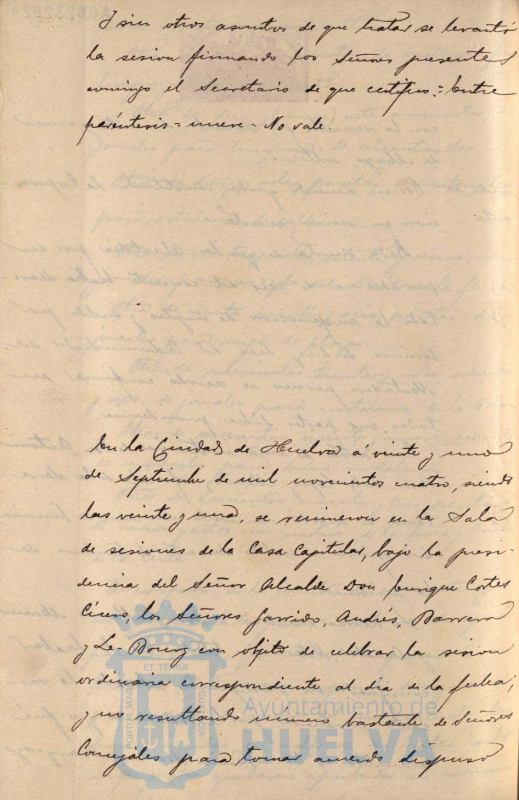 Y sin otros asuntos de que tratar se levantó
la sesion firmando los Señores presentes
conmigo el Secretario de que certifico = Entre
paréntesis = nueve - No vale.
En la Ciudad de Huelva á veinte y uno
de Septiembre de mil novecientos cuatro, siendo
las veinte y una, se reunieron en la Sala
de sesiones de la Casa Capitular, bajo la presi-
dencia del Señor Alcalde Don Enrique Cortes
Cicero, los Señores Garrido, Andrés, Barrera
y Le-Bourg con objeto de celebrar la sesion
ordinaria correspondiente al dia de la fecha;
y no resultando número bastante de Señores
Concejales para tomar acuerdo dispuso
ET TERRAE
Ayuntamiento de
HUELVA